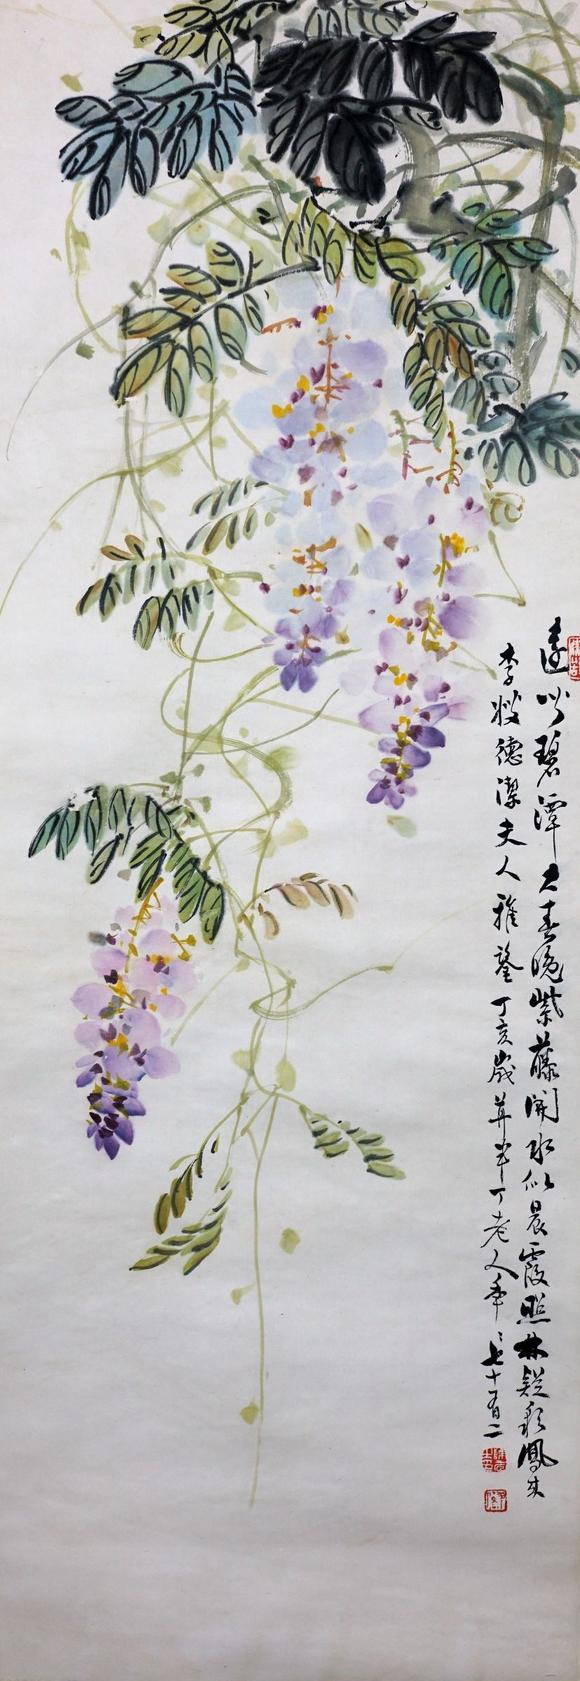 遙聞碧潭上春晚紫藤開水似晨霞照林疑彩鳳來
李嫂德潔夫人雅鑒丁亥歲半丁老人年七十有二